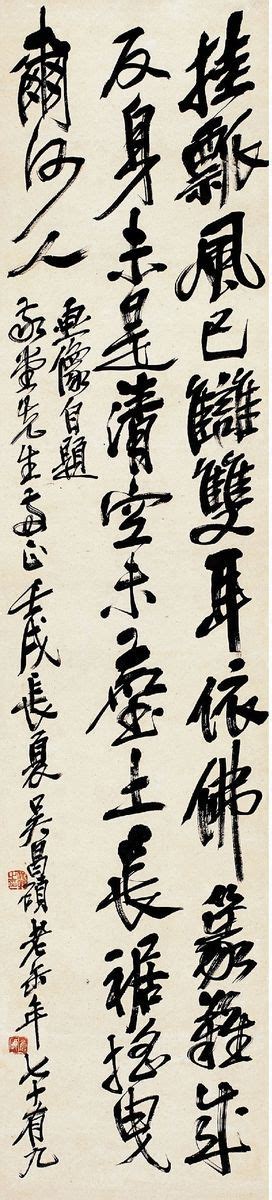 挂瓢風已讎雙耳依佛篆難成
反身未是清空未塵土長裾搖曳
爾何人
畫像自題
堂先生正壬戌長夏吳昌碩老缶年七十有九